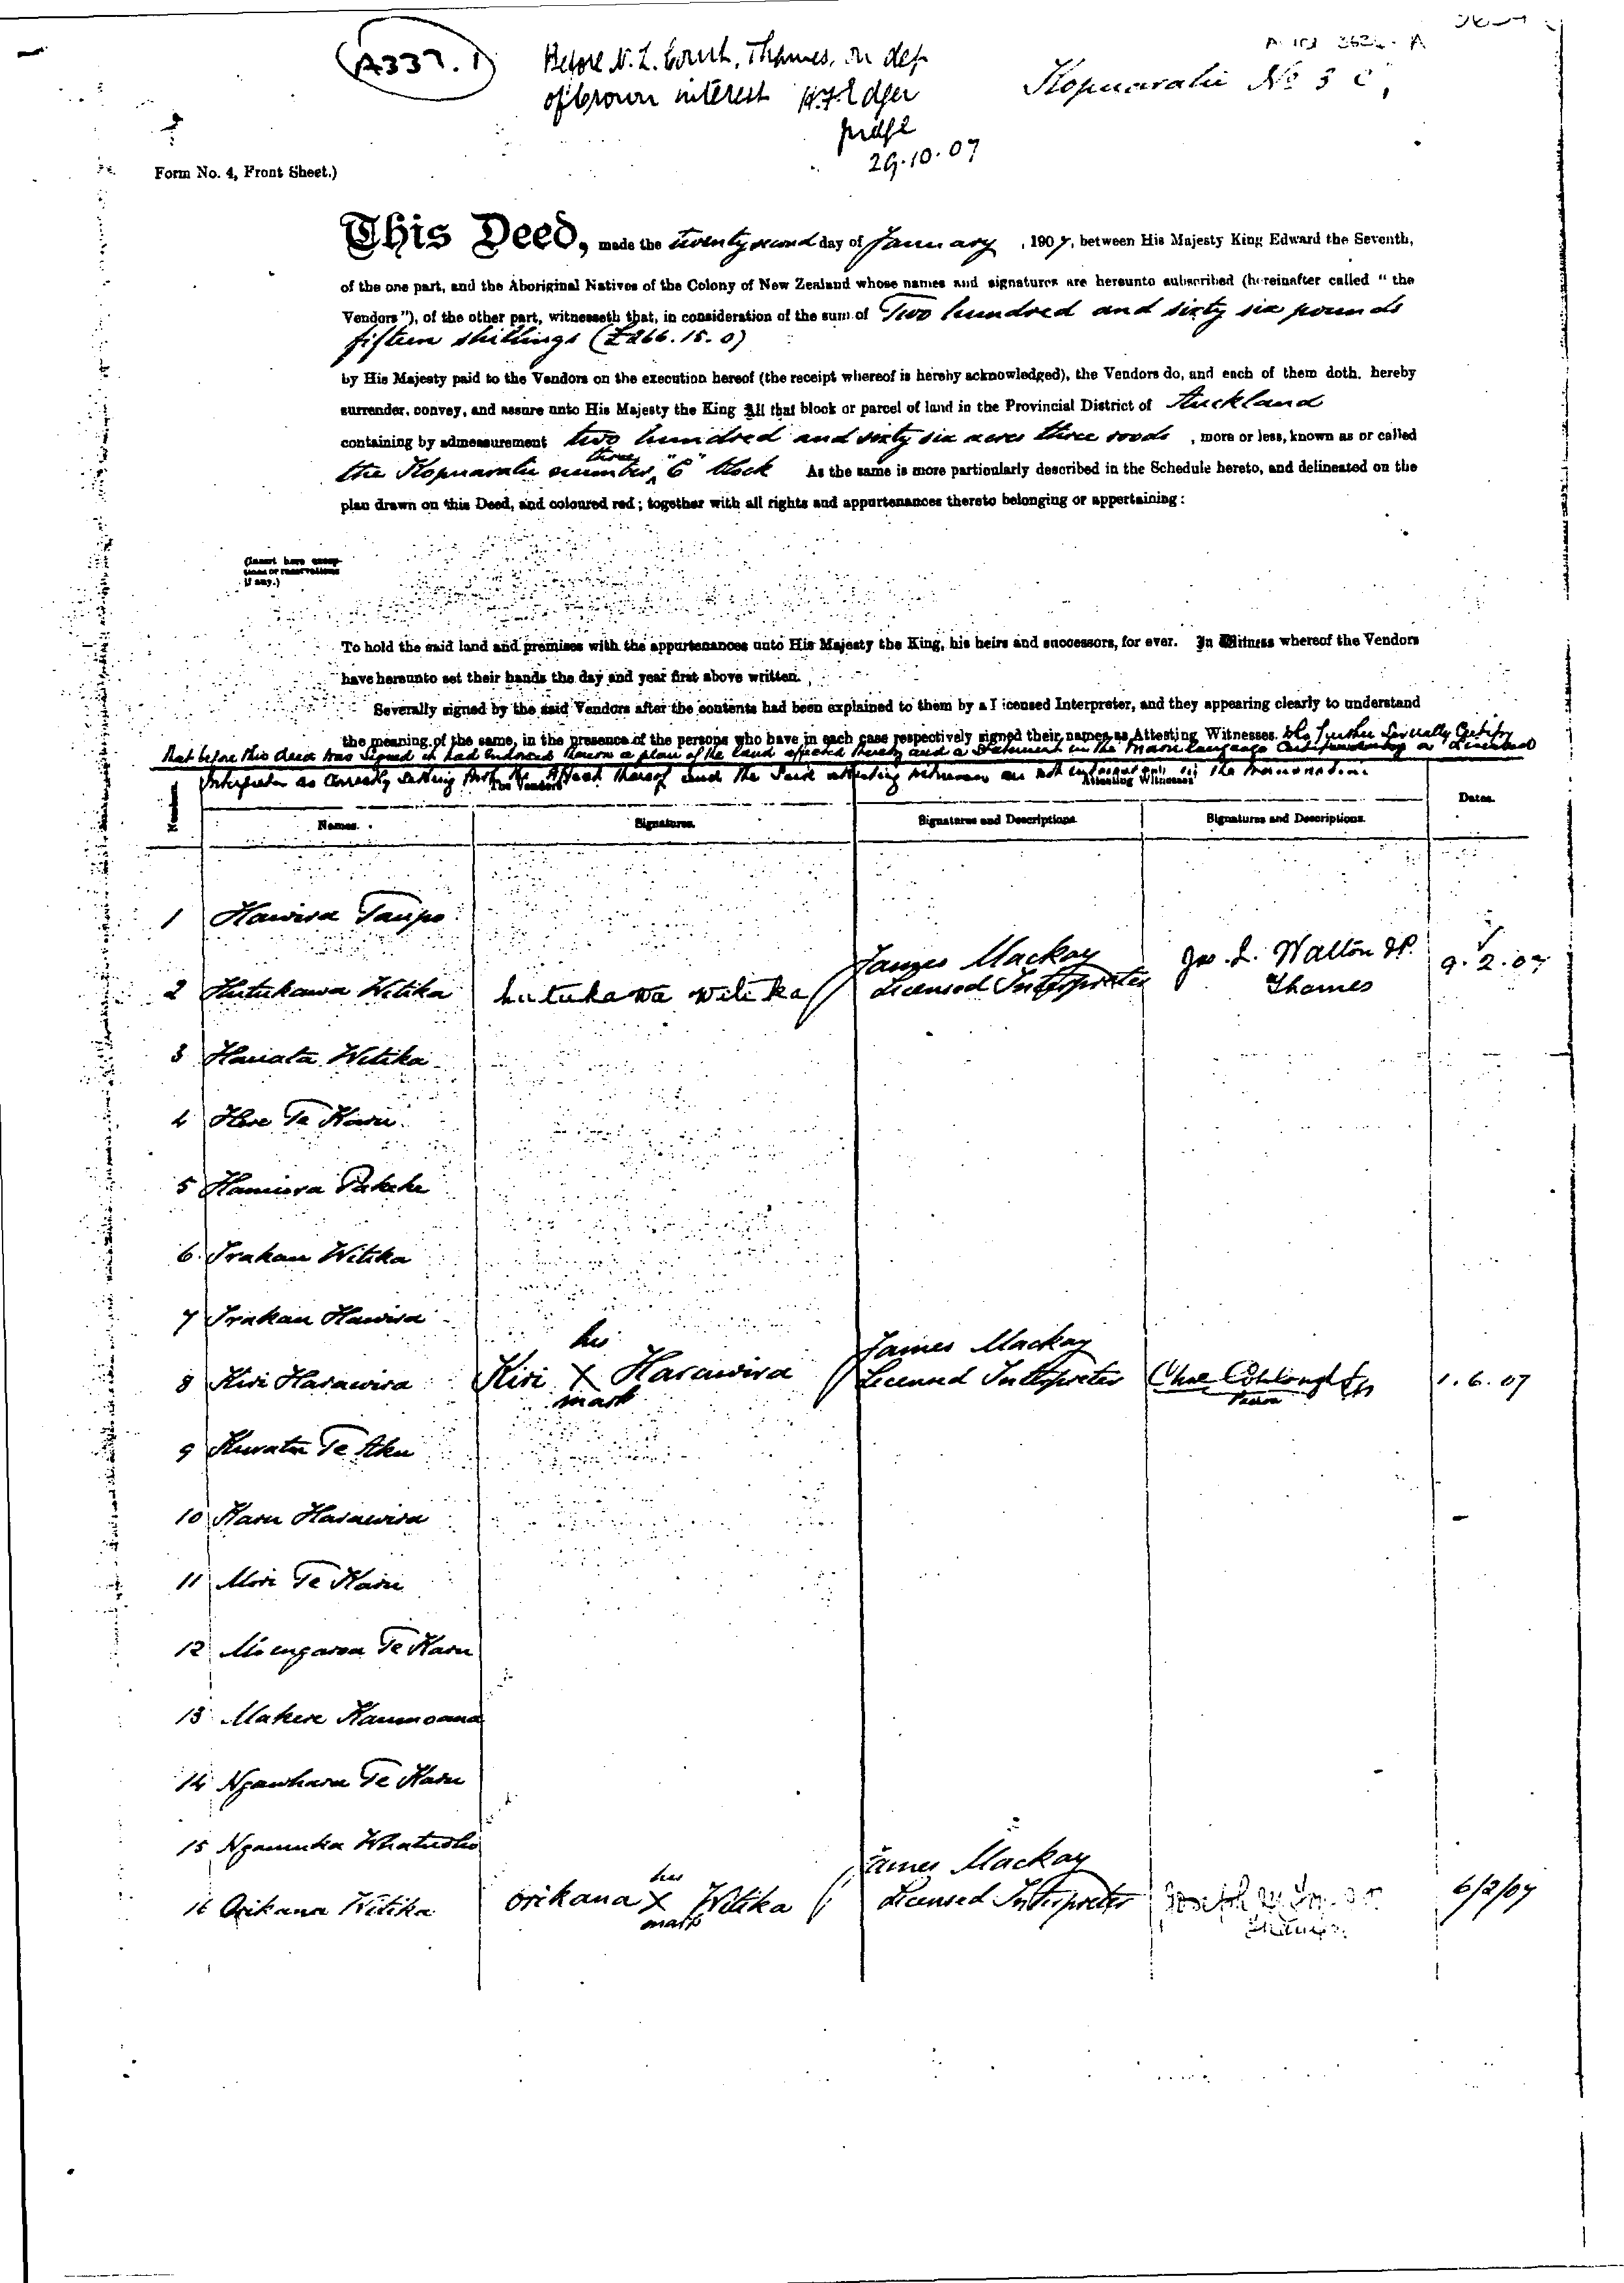 A337.1
Before N. L. Court, Thames, on def
of Crown interest H. F. Edger
Judge
29.10.07
Kopuarahi No 3 C,
Form No. 4, Front Sheet.)
This Deed, made the twenty second day of January, 1907, between His Majesty King Edward the Seventh,
of the one part, and the Aboriginal Natives of the Colony of New Zealand whose names and signatures are hereunto subscribed (hereinafter called "the
Vendors"), of the other part, witnesseth that, in consideration of the sum of Two hundred and sixty six pounds
fifteen shillings (£266.15.0)
by His Majesty paid to the Vendors on the execution hereof (the receipt whereof is hereby acknowledged), the Vendors do, and each of them doth, hereby
surrender, convey, and assure unto His Majesty the King All that block or parcel of land in the Provincial District of Auckland
containing by admeasurement two hundred and sixty six acres three roods, more or less, known as or called
the Kopuarahi number three "C" block As the same is more particularly described in the Schedule hereto, and delineated on the
plan drawn on this Deed, and coloured red; together with all rights and appurtenances thereto belonging or appertaining:
(Insert here excep-
tions or reservations
if any.)
To hold the said land and premises with the appurtenances unto His Majesty the King, his heirs and successors, for ever. In Witness whereof the Vendors
have hereunto set their hands the day and year first above written.
Severally signed by the said Vendors after the contents had been explained to them by a Licensed Interpreter, and they appearing clearly to understand
the meaning of the same, in the presence of the persons who have in each case respectively signed their names as Attesting Witnesses. Who further severally Certify
that before this deed was signed it had endorsed thereon a plan of the land affected thereby and a Statement in the Maori language Certified by a Licensed
Interpreter as correctly setting forth the effect thereof and the said attesting witnesses are not in the transaction.
The Vendors
Attesting Witnesses
Numbers.
Names.
Signatures.
Signatures and Descriptions.
Signatures and Descriptions.
Dates.
1 Hawira Taupo
2 Hutukawa Witika hutukawa witika James Mackay Licensed Interpreter Jas. L. Walton JP. Thames 9.2.07
3 Hariata Witika
4 Here Te Karu
5 Hamiora Pakeke
6 Irakau Witika
7 Irakau Hawira
8 Kiri Harawira Kiri his X mark Harawira James Mackay Licensed Interpreter Paeroa 1.6.07
9 Kuratu Te Aku
10 Karu Harawira
11 Mori Te Karu
12 Moengaroa Te Karu
13 Makere Kaumoana
14 Ngawhara Te Karu
15 Ngamuka
16 Orikana Witika Orikana his X mark Witika James Mackay Licensed Interpreter Joseph Thames 6/2/07